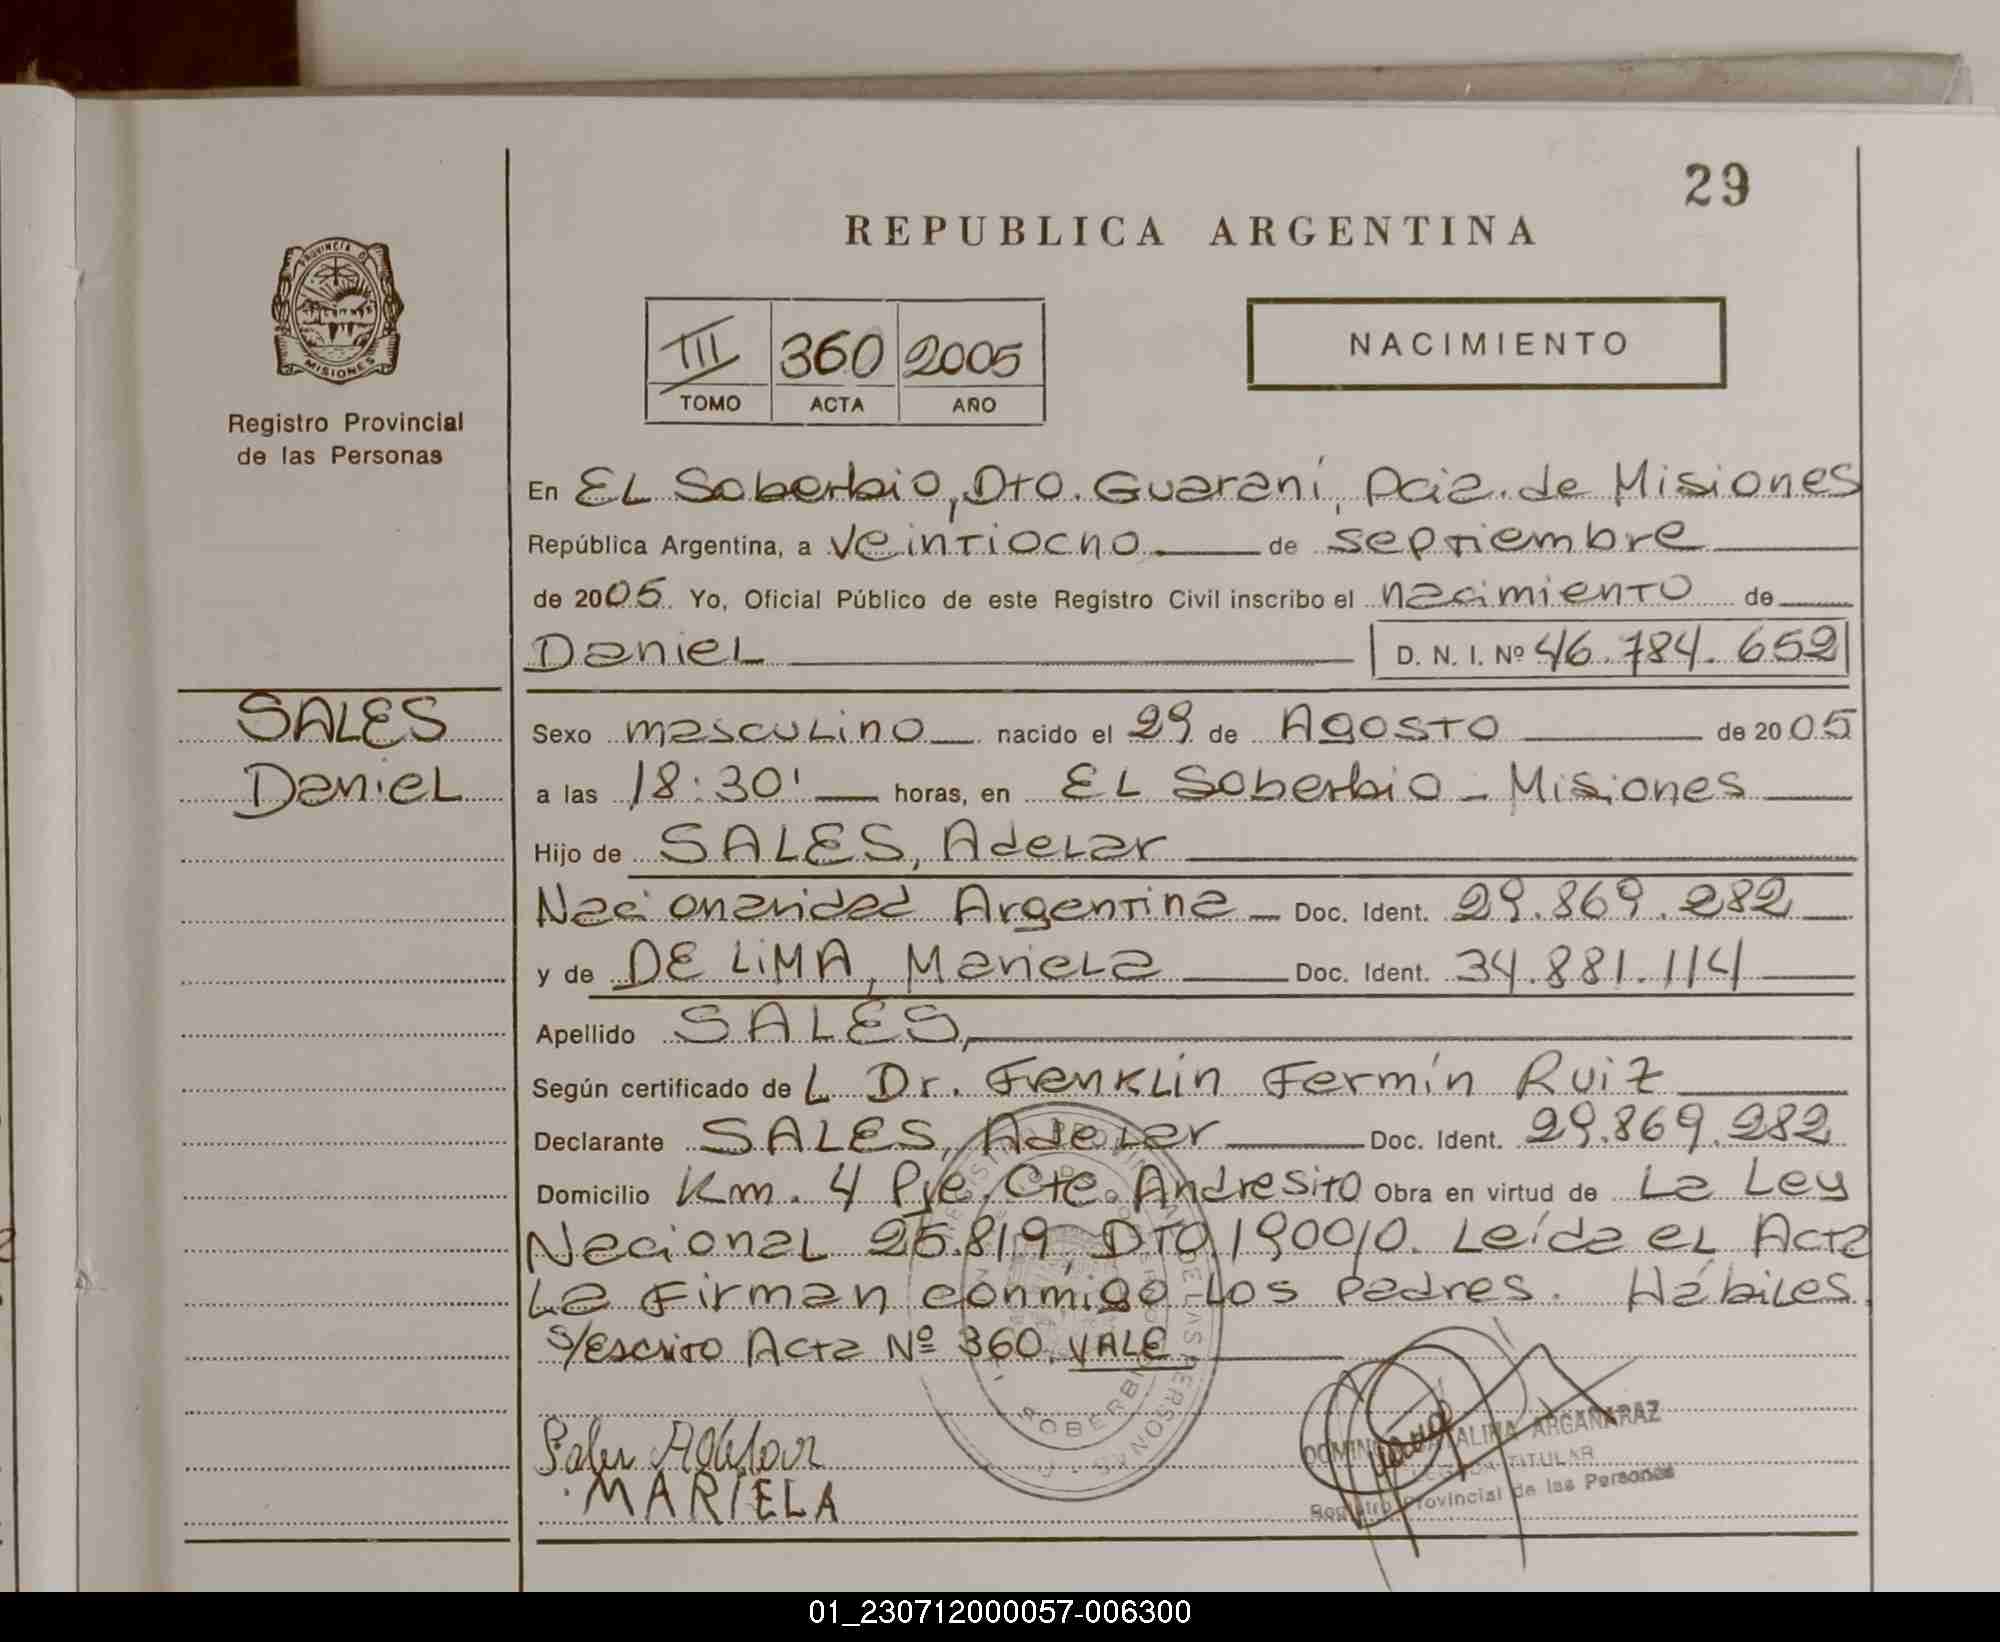 29
REPUBLICA ARGENTINA
PROVINCIA D
MISIONES
Registro Provincial
de las Personas
III 360 2005
TOMO ACTA AÑO
NACIMIENTO
En EL Soberbio, Dto. Guaraní, Pcia. de Misiones
República Argentina, a veintiocho de septiembre
de 2005 Yo, Oficial Público de este Registro Civil inscribo el nacimiento de
Daniel D. N. I. Nº 46.784.652
SALES
Daniel
Sexo masculino nacido el 29 de Agosto de 2005
a las 18:30' horas, en EL Soberbio - Misiones
Hijo de SALES, Adelar
Nacionalidad Argentina Doc. Ident. 29.869.282
y de DE LiMA, Mariela Doc. Ident. 34.881.114
Apellido SALES,
Según certificado de L Dr. Frenklin Fermín Ruiz
Declarante SALES, Adelar Doc. Ident. 29.869.282
Domicilio Km. 4 Pje. Cte. Andresito Obra en virtud de La Ley
Nacional 25.819, DTO. 190010. Leída el Acta
La firman conmigo los padres. Hábiles.
s/Escrito Acta Nº 360. VALE
DE LAS PERSONAS
SOBERBIO
ARGAÑARAZ
TITULAR
Registro Provincial de las Personas
MARIELA
01_230712000057-006300